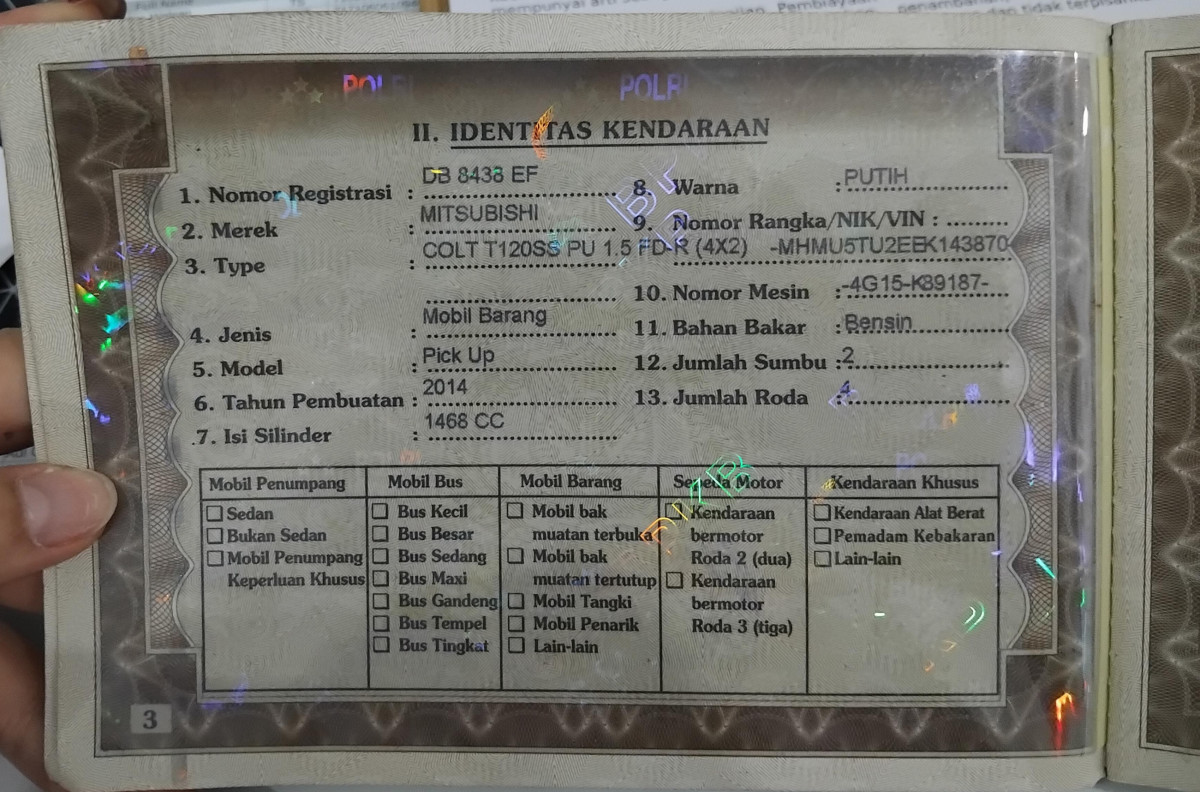 POLRI POLRI
II. IDENTITAS KENDARAAN
1. Nomor Registrasi : DB 8438 EF
2. Merek : MITSUBISHI
3. Type : COLT T120SS PU 1.5 FD-R (4X2)
4. Jenis : Mobil Barang
5. Model : Pick Up
6. Tahun Pembuatan : 2014
7. Isi Silinder : 1468 CC
8. Warna : PUTIH
9. Nomor Rangka/NIK/VIN :
-MHMU5TU2EEK143870-
10. Nomor Mesin : -4G15-K89187-
11. Bahan Bakar : Bensin
12. Jumlah Sumbu : 2
13. Jumlah Roda : 4
Mobil Penumpang
Sedan
Bukan Sedan
Mobil Penumpang
Keperluan Khusus
Mobil Bus
Bus Kecil
Bus Besar
Bus Sedang
Bus Maxi
Bus Gandeng
Bus Tempel
Bus Tingkat
Mobil Barang
Mobil bak
muatan terbuka
Mobil bak
muatan tertutup
Mobil Tangki
Mobil Penarik
Lain-lain
Sepeda Motor
Kendaraan
bermotor
Roda 2 (dua)
Kendaraan
bermotor
Roda 3 (tiga)
Kendaraan Khusus
Kendaraan Alat Berat
Pemadam Kebakaran
Lain-lain
3